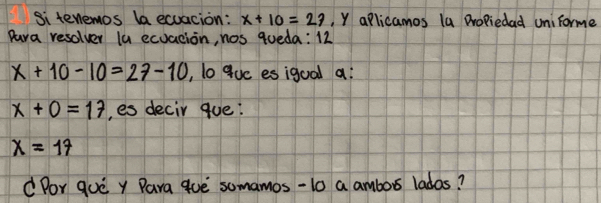 1) Si tenemos la ecuación: x + 10 = 27, Y aPlicamos la ProPiedad uniforme
Para resolver la ecuación, nos queda: 12
x + 10 - 10 = 27 - 10, lo que es igual a:
x + 0 = 17, es decir que:
x = 17
¿Por qué y Para qué sumamos - 10 a ambos lados?